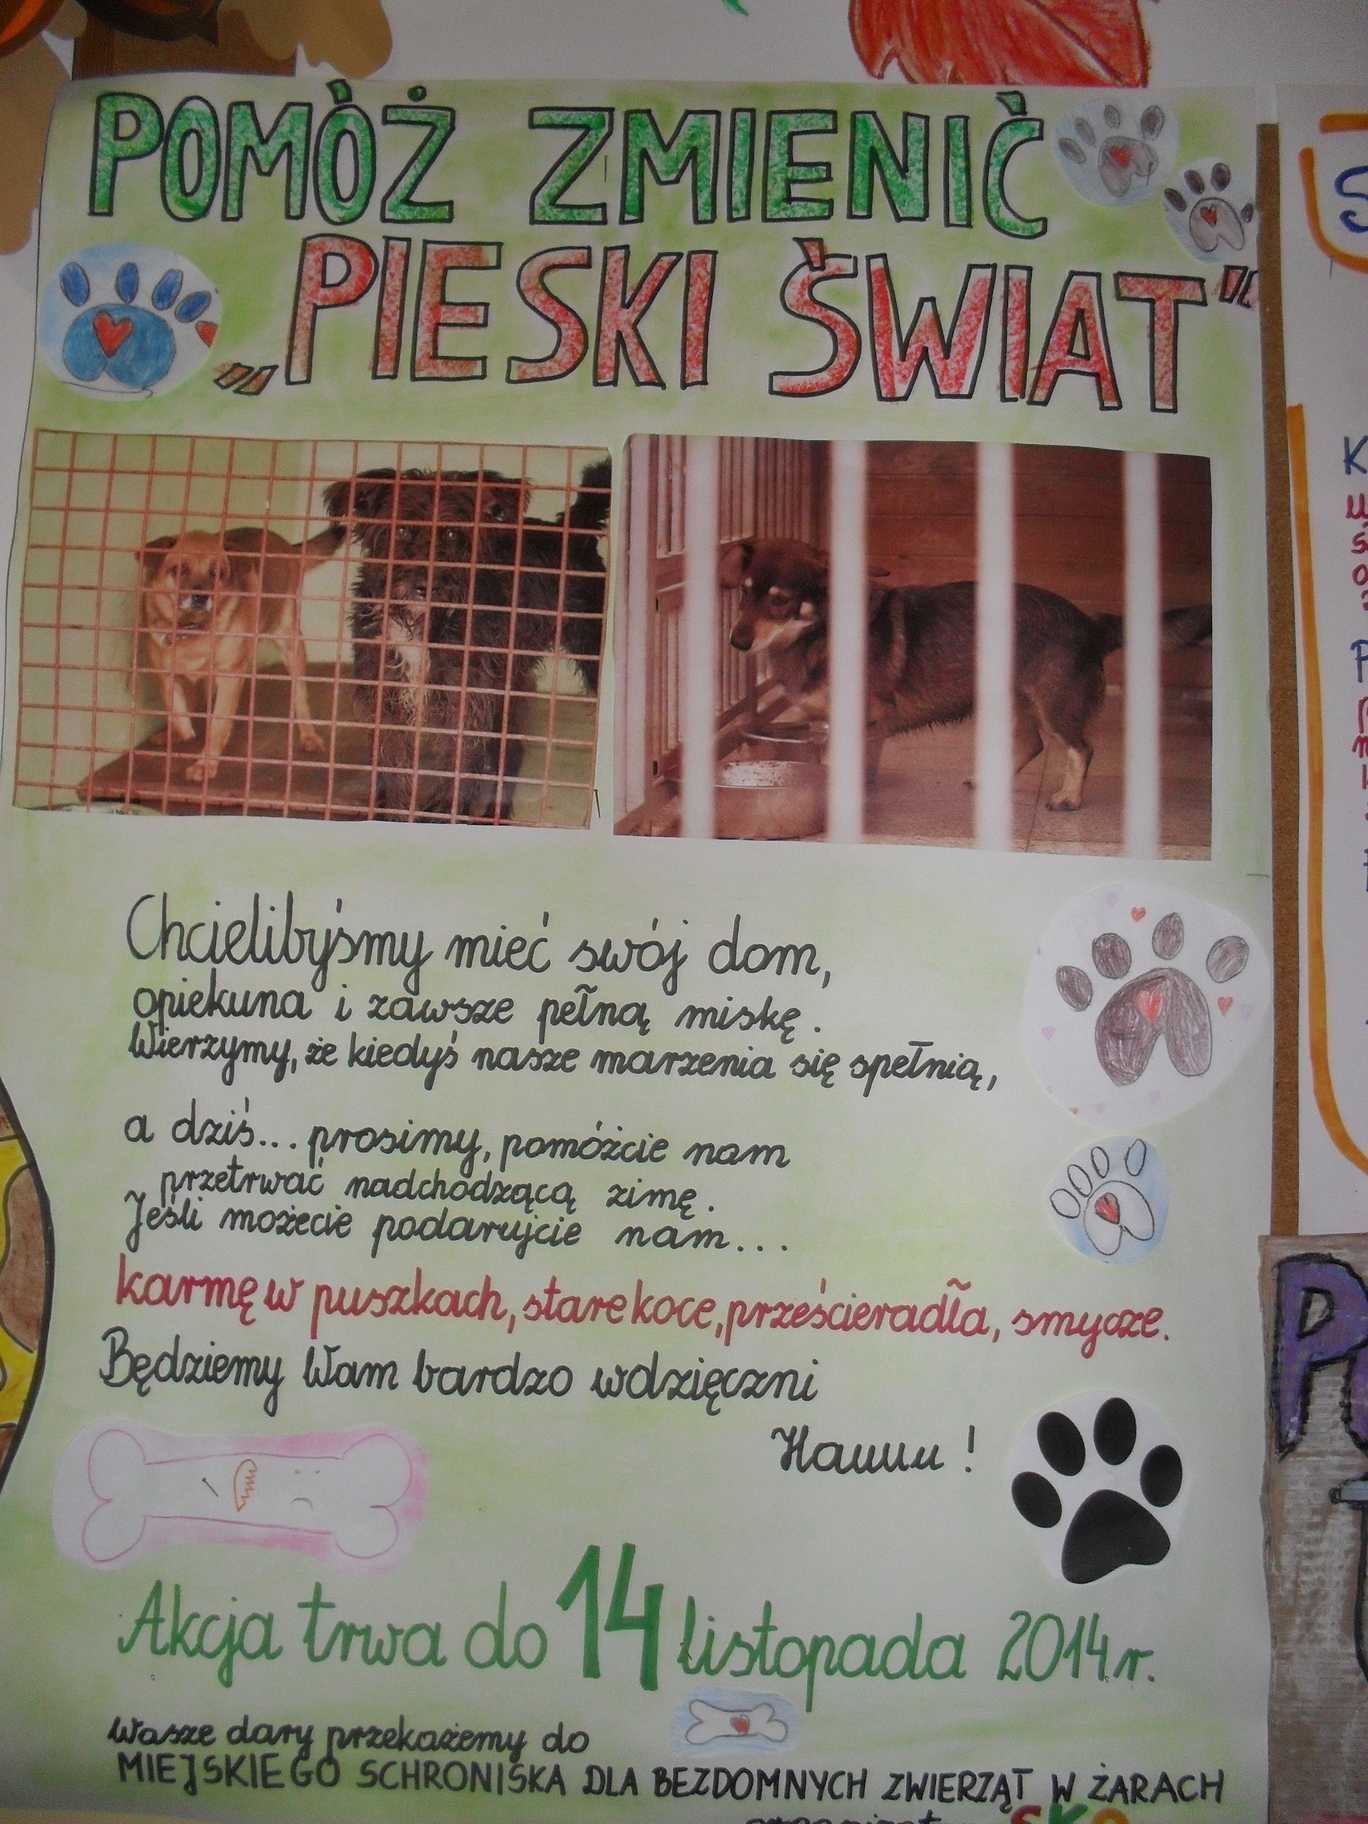 POMÓŻ ZMIENIĆ
„PIESKI ŚWIAT"
Chcielibyśmy mieć swój dom,
opiekuna i zawsze pełną miskę.
Wierzymy, że kiedyś nasze marzenia się spełnią,
a dziś... prosimy, pomóżcie nam
przetrwać nadchodzącą zimę.
Jeśli możecie podarujcie nam...
karmę w puszkach, stare koce, prześcieradła, smycze.
Będziemy Wam bardzo wdzięczni
Hauuu !
Akcja trwa do 14 listopada 2014 r.
Wasze dary przekażemy do
MIEJSKIEGO SCHRONISKA DLA BEZDOMNYCH ZWIERZĄT W ŻARACH